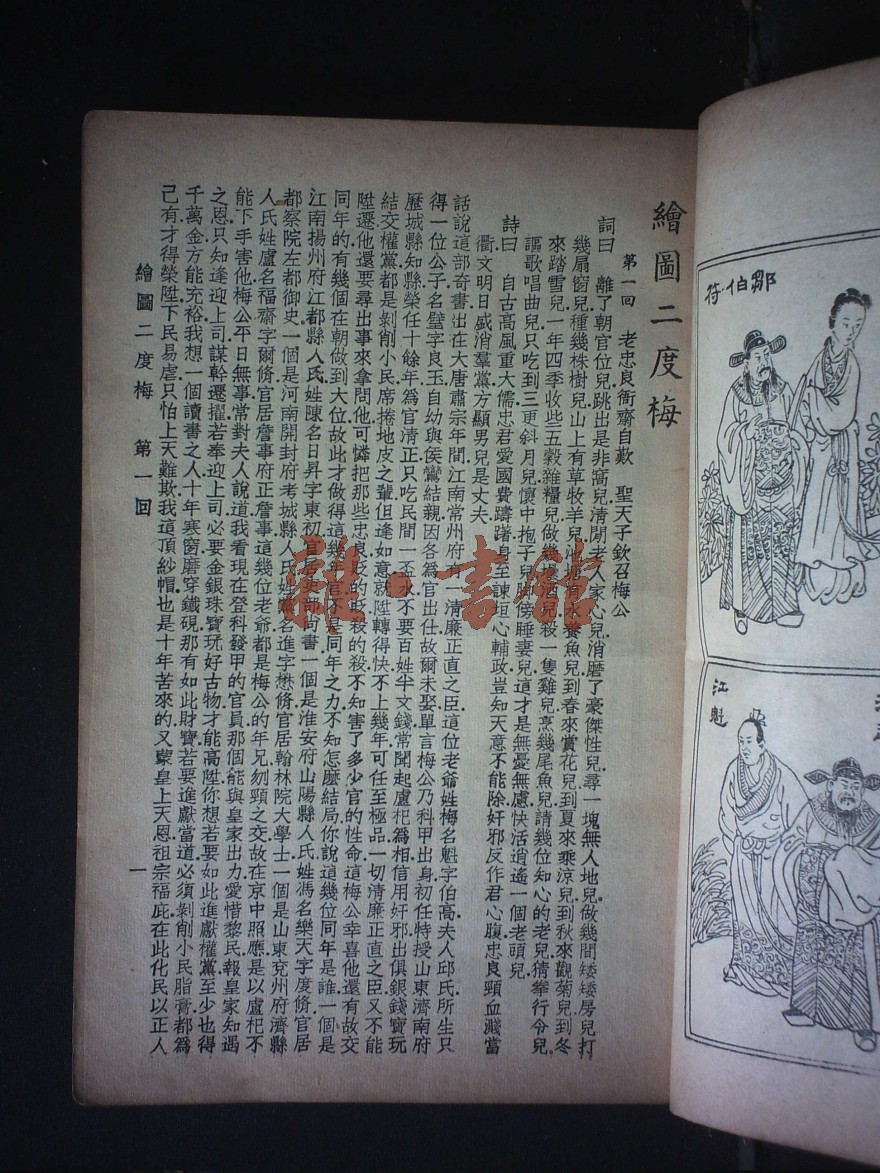 繪圖二度梅
第一回　老忠良衙齋自歎　聖天子欽召梅公
詞曰　離了朝官位兒.跳出是非窩兒.清閒老人家心兒.消磨了豪傑性兒.尋一塊無人地兒.做幾間矮矮房兒.打
幾扇窗兒.種幾株樹兒.山上有草牧羊兒.池有水養魚兒.到春來賞花兒.到夏來乘涼兒.到秋來觀菊兒.到冬
來踏雪兒.一年四季收些五穀雜糧兒.做幾酒兒.殺一隻雞兒.烹幾尾魚兒.請幾位知心的老兒.猜拳行令兒.
謳歌唱曲兒.只吃到三更斜月兒.懷中抱子兒.脚傍睡妻兒.這才是無憂無慮快活逍遙一個老頭兒.
詩曰　自古高風重大儒.忠君愛國費躊躇.身至諫垣心輔政.豈知天意不能除.奸邪反作君心腹.忠良頸血濺當
衢.文明日盛消羣黨.方顯男兒是丈夫.
話說這部奇書.出在大唐肅宗年間.江南常州府.有一清廉正直之臣.這位老爺姓梅名魁字伯高.夫人邱氏.所生只
得一位公子.名璧字良玉.自幼與侯鸞結親.因各爲官出仕.故爾未娶.單言梅公乃科甲出身.初任特授山東濟南府
歷城縣知縣.榮任十餘年.爲官清正.只吃民間一盃水.不要百姓半文錢.常聞起盧杞爲相.信用奸邪.出俱銀錢寶玩.
結交權黨.都是剝削小民.席捲地皮之輩.但逢如意.就陞轉得快.不上幾年.可任至極品.一切清廉正直之臣.又不能
陞遷.他還要尋出事來拿問他.可憐把那些忠良.貶的貶.殺的殺.不知害了多少官的性命.這梅公幸喜他還有故交
同年的.有幾個在朝做到大位.故此才做得這幾年官.不是同年之力.不知怎麽結局.你說這幾位同年是誰.一個是
江南揚州府江都縣人氏.姓陳名日昇字東初.官居吏部尚書.一個是淮安府山陽縣人氏.姓馮名樂天字度脩.官居
都察院左都御史.一個是河南開封府考城縣人氏.姓黨名進字懋脩.官居翰林院大學士.一個是山東兗州府濟縣
人氏.姓盧名福齋字爾脩.官居詹事府正詹事.這幾位老爺都是梅公的年兄.刎頸之交.故在京中照應.是以盧杞不
能下手害他.梅公平日無事.常對夫人說道.我看現在登科發甲的官員.那個能與皇家出力.愛惜黎民.報皇家知遇
之恩.只知逢迎上司.謀幹遷擢.若奉迎上司.必要金銀珠寶.玩好古物.才能高陞.你想若要如此進獻權黨.至少也得
千萬金方能充裕.我想一個讀書之人.十年寒窗.磨穿鐵硯.那有如此財寶.若要進獻當道.必須剝削小民脂膏.都爲
己有.才得榮陞.下民易虐.只怕上天難欺.我這頂紗帽.也是十年苦來的.又蒙皇上天恩.祖宗福庇.在此化民以正人
繪圖二度梅　第一回
一
鄒伯符
江魁
雜·書館